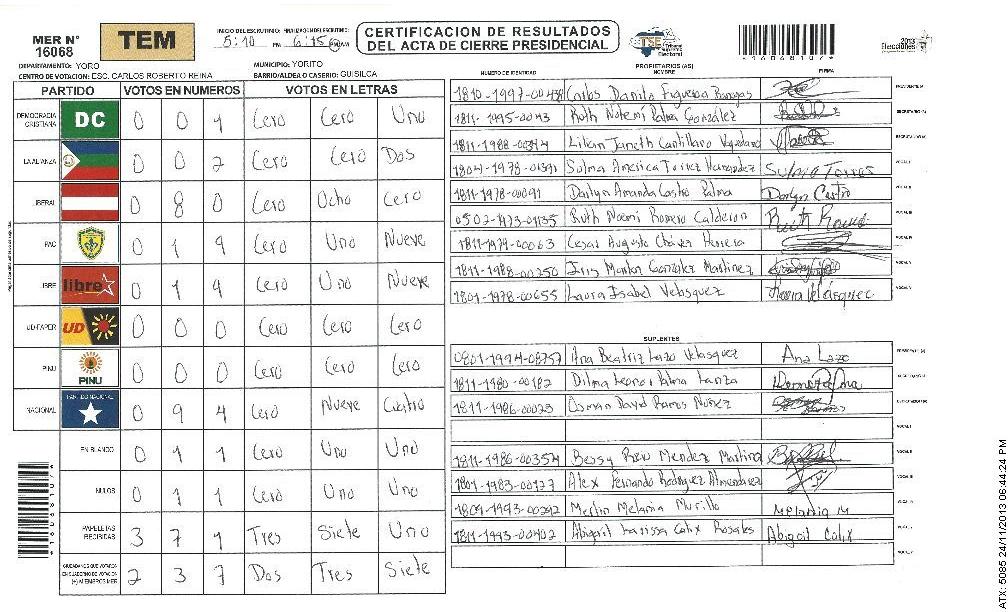 MER N° 16068
TEM
INICIO DEL ESCRUTINIO: 5:10 PM
FINALIZACION DEL ESCRUTINIO: 6:15 PM AM
CERTIFICACION DE RESULTADOS
DEL ACTA DE CIERRE PRESIDENCIAL
TSE Tribunal Supremo Electoral
*16068107*
2013 Elecciones
DEPARTAMENTO: YORO
MUNICIPIO: YORITO
CENTRO DE VOTACION: ESC. CARLOS ROBERTO REINA
BARRIO/ALDEA O CASERIO: GUISILCA
PARTIDO VOTOS EN NUMEROS VOTOS EN LETRAS
DEMOCRACIA CRISTIANA DC 0 0 1 Cero Cero Uno
LA ALIANZA 0 0 2 Cero Cero Dos
LIBERAL 0 8 0 Cero Ocho Cero
PAC 0 1 9 Cero Uno Nueve
LIBRE libre 0 1 9 Cero Uno Nueve
UD-FAPER UD 0 0 0 Cero Cero Cero
PINU PINU 0 0 0 Cero Cero Cero
NACIONAL PARTIDO NACIONAL 0 9 4 Cero Nueve Cuatro
EN BLANCO 0 1 1 Cero Uno Uno
NULOS 0 1 1 Cero Uno Uno
PAPELETAS RECIBIDAS 3 7 1 Tres Siete Uno
CIUDADANOS QUE VOTARON EN CUADERNO DE VOTACION (+) MIEMBROS MER 2 3 7 Dos Tres Siete
PROPIETARIOS (AS)
NUMERO DE IDENTIDAD NOMBRE FIRMA
Carlos Danilo Figueroa PRESIDENTE (A)
Ruth Nohemi Palma González SECRETARIO (A)
1811-1988- Lilian Janeth Cantillano
1804-1978- Sulma America Torrez Hernandez Sulma Torres
1811-1978-00091 Darlyn Amanda Castro Palma Darlyn Castro
0502-1973-01135 Ruth Noemi Romero Calderon
1811-1979-00063 Cesar Augusto Chávez Herrera
1811-1988-00250 Iris Marlen González Martinez
1801-1978-00655 Laura Isabel Velasquez
SUPLENTES
0801-1994-08757 Ana Beatriz Lazo Velasquez Ana Lazo
1811-1980-00182 Dilma Leonor Palma Lanza
1811-1986-00023 Osman David Ramos Núñez
1811-1986-00354 Bessy Mendez Martinez
1801-1983- Alex Fernando Rodriguez Almendarez
1804-1993-00292 Merlin Melania Murillo Melania M
1811-1993-00402 Abigail Larissa Calix Rosales Abigail Calix
*16068107*
ATX: 5085 24/11/2013 06:44:24 PM